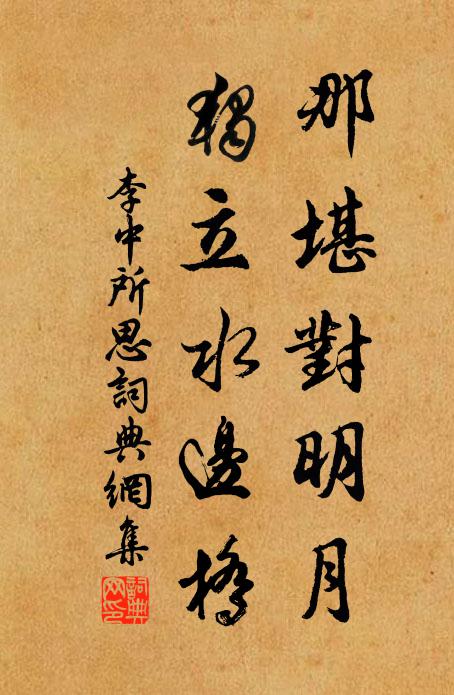 那堪對明月
獨立水邊橋
李中所思詞典網集
詞典网印